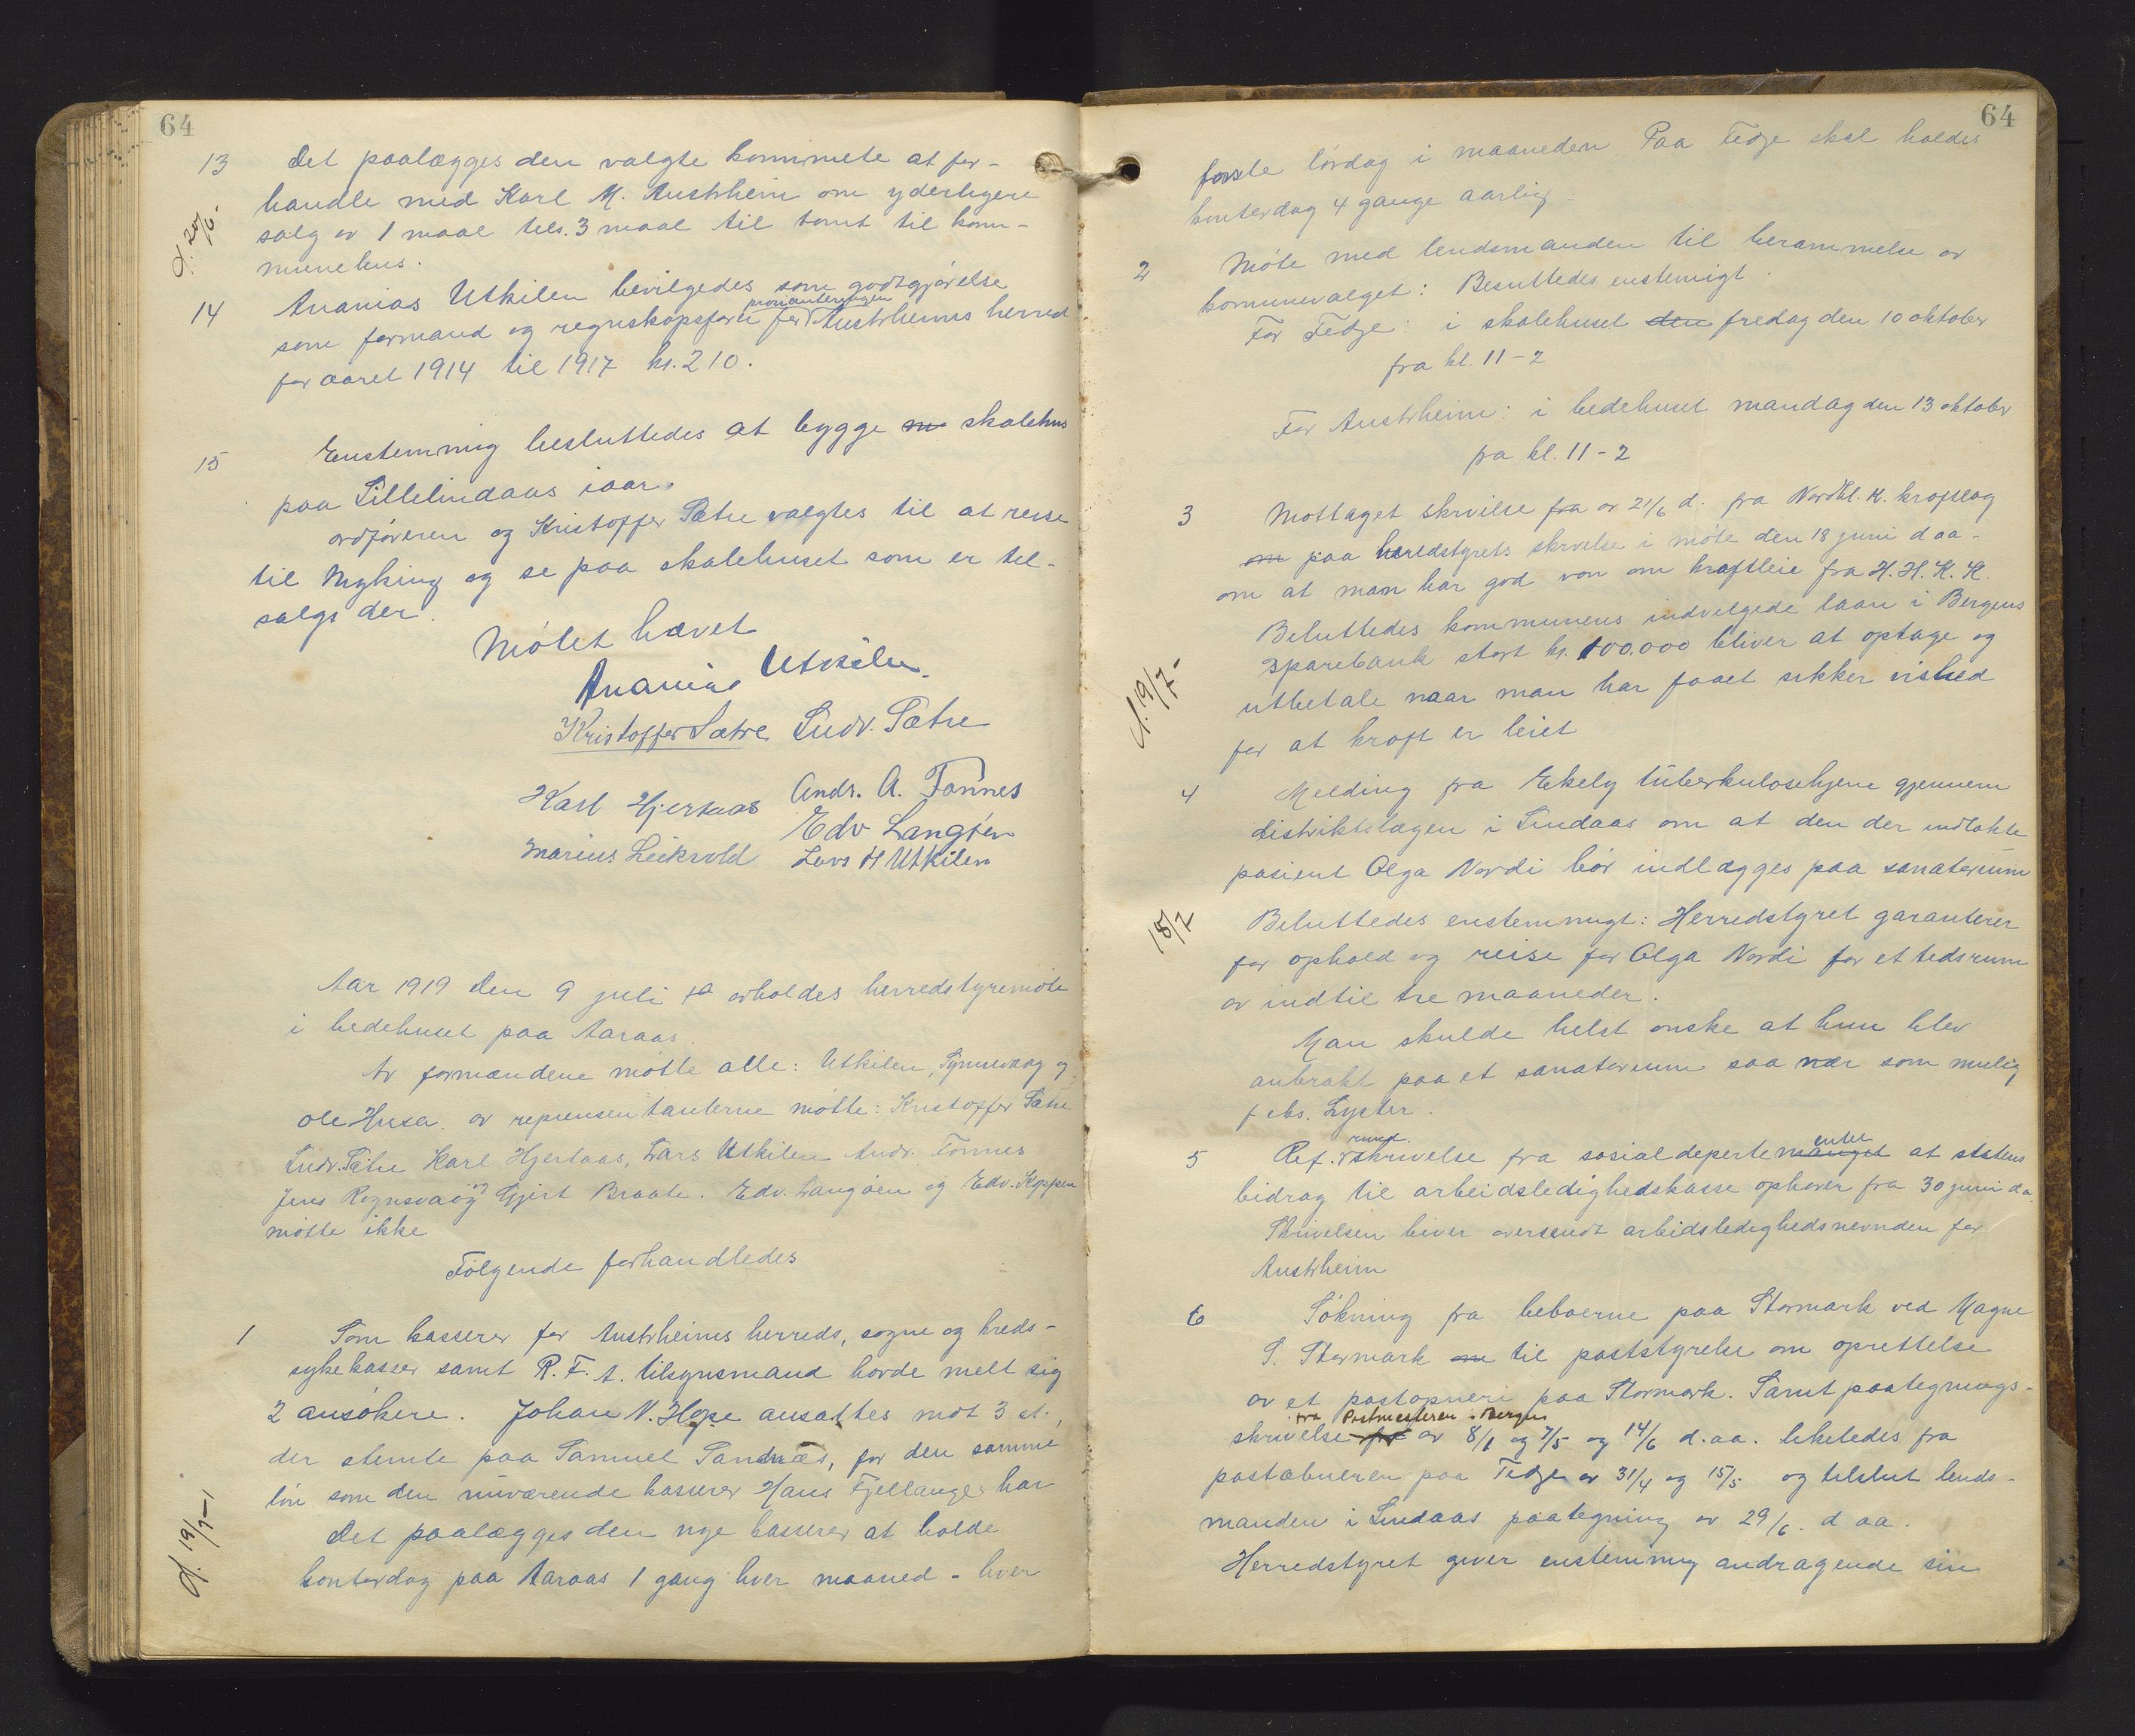 64
13 Det paalægges den valgte kommite at for-
handle med Karl M. Austrheim om yderligere
salg av 1 maal tils. 3 maal til tomt til kom-
munehus.
14 Ananias Utkilen bevilgedes som godtgjørelse
som formand og regnskapsfører for provianteringen Austrheims herred
for aaret 1914 til 1917 kr. 210.
15 Enstemmig besluttedes at bygge skolehus
paa Lillelindaas iaar.
ordføreren og Kristoffer Sætre valgtes til at reise
til Myking og se paa skolehuset som er til-
salgs der.
Møtet hævet
Ananias Utkilen
Kristoffer Sætre Ludv. Sætre
Karl Hjertaas Andr. A. Fonnes
Edv Langøen
Marius Leirvold Lars H Utkilen
Aar 1919 den 9 juli avholdes herredstyremøte
i bedehuset paa Aaraas.
Av formændene møtte alle: Utkilen, Synnevaag og
Ole Husa. av reprensentanterne møtte: Kristoffer Sætre
Ludv. Sætre Karl Hjertaas, Lars Utkilen Andr. Fonnes
Jens Rognsvaag og Gjert Braate. Edv. Langøen og Edv. Koppen
møtte ikke
Følgende forhandledes
1 Som kasserer for Austrheims herreds, sogne og kreds-
sykekasser samt R.F.A. tilsynsmand havde melt sig
2 ansøkere. Johan N. Hope ansattes mot 3 st.,
der stemte paa Samuel Sandnæs, for den samme
løn som den nuværende kasserer Hans Fjellanger har
Det paalægges den nye kasserer at holde
kontordag paa Aaraas 1 gang hver maaned - hver
d. 19/7-
64
første lørdag i maaneden Paa Fedje skal holdes
kontordag 4 gange aarlig.
2 Møte med lendsmanden til berammelse av
kommunevalget: Besluttedes enstemigt.
For Fedje: i skolehuset den fredag den 10 oktober
fra kl. 11-2
For Austrheim: i bedehuset mandag den 13 oktober
fra kl. 11-2
3 Mottaget skrivelse fra av 21/6 d. fra Nordhl. K. kraftlag
om paa heredstyrets skrivelse i møte den 18 juni d aa-
om at man har god von om kraftleie fra H.H.K.K
Beluttedes kommunens indvilgede laan i Bergens
Sparebank stort kr. 100.000 bliver at optage og
utbetale naar man har faaet sikker vished
for at kraft er leiet
d. 19/7-
4 Melding fra Ekely tuberkulosehjem gjennem
distriktslægen i Lindaas om at den der indlakte
pasient Olga Nordi bør indlægges paa sanatorium
15/7
Beluttedes enstemmigt: Herredstyret garanterer
for ophold og reise for Olga Nordi for et tedsrum
av indtil tre maaneder.
Man skulde helst ønske at hun blev
anbrakt paa et sanatorium saa nær som mulig
f eks. Lyster.
5 Ref. rundskrivelse fra sosialdepertementet at statens
bidrag til arbeidsledighedskasse ophører fra 30 juni d a.
Skrivelsen biver oversendt arbeidsledighedsnevnden for
Austrheim
6 Søkning fra beboerne paa Stormark ved Magne
S. Stormark om til poststyrelse om oprettelse
av et postopneri paa Stormark. Samt paategnings-
fra Postmesteren i Bergen
skrivelse av 8/1 og 7/5 og 14/6 d.aa. likeledes fra
postaabneren paa Fedje av 31/4 og 15/5 og tilslut lends-
manden i Lindaas paategning av 29/6. d aa.
Herredstyret giver enstemmig andragende sin